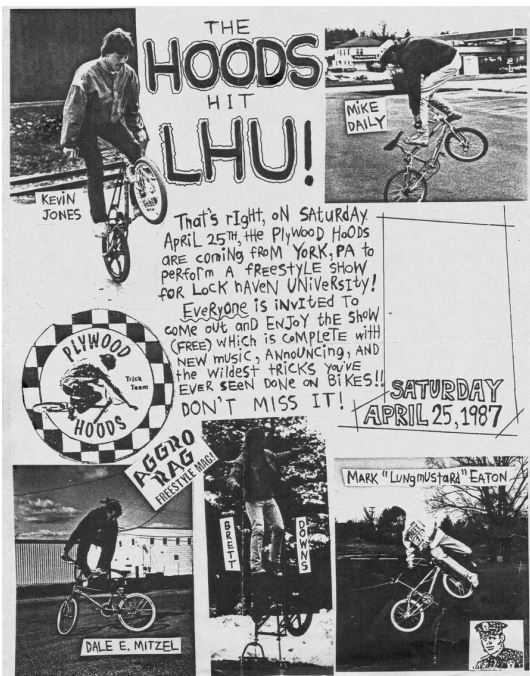 THE
HOODS
HIT
LHU!
KEVIN
JONES
MIKE
DAILY
That's rIght, oN SATURDAY
April 25TH, the PlYWOOD HoODS
ARE comIng from YORK, PA to
perform A fReestyle SHOW
for Lock hAVEN UNiveRsity!
EveRyone is INVITED TO
come out and ENJOY the SHOW
(FREE) which is COMPLETE with
NEW music, Announcing, AND
the WILDEST tRicks you've
EVER SEEN DONE ON BIKES!!
DON'T MISS IT!
SATURDAY
APRIL 25, 1987
PLYWOOD
Trick
Team
HOODS
AGGRO
RAG
FREESTYLE MAG!
BRETT
DOWNS
MARK "LUNgmustard" EATON
DALE E. MITZEL